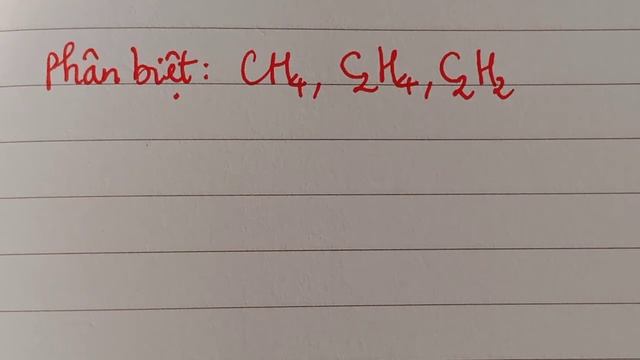 Phân biệt: CH₄, C₂H₄, C₂H₂